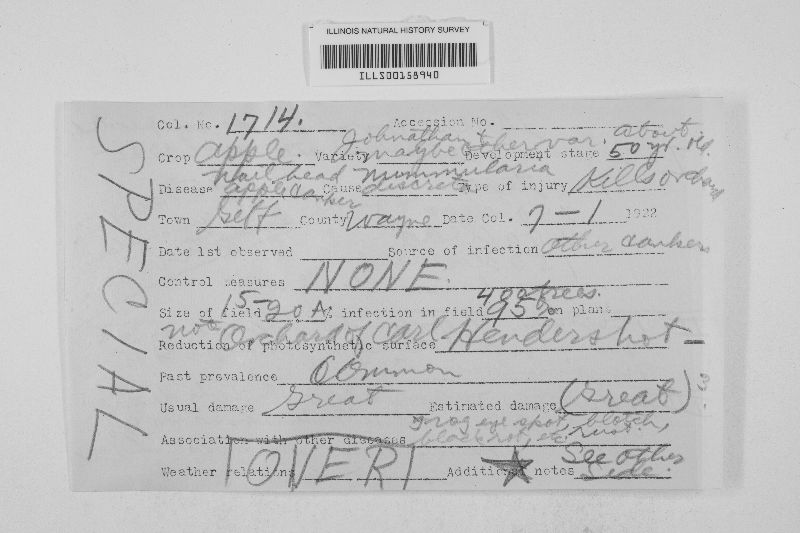 ILLINOIS NATURAL HISTORY SURVEY
ILLS00158940
SPECIAL
Col. No. 1714. Accession No.
Johnathan & about
Crop apple. Variety maybe other var. Development stage 50 yr. old.
Nail head Nummularia
Disease apple canker Cause discreta Type of injury Kills orchard
Town Geff County Wayne Date Col. 7-1 1922
Date 1st observed Source of infection other cankers
Control measures NONE.
400 trees.
Size of field 15-20 A. % infection in field 95% on plant
not Orchard of Carl Hendershot
Reduction of photosynthetic surface
Past prevalence Common
Usual damage Great Estimated damage (Great)
Frog eye spot, blotch,
Association with other diseases black rot, etc rust.
Weather relations (OVER) Additional notes See other
side.